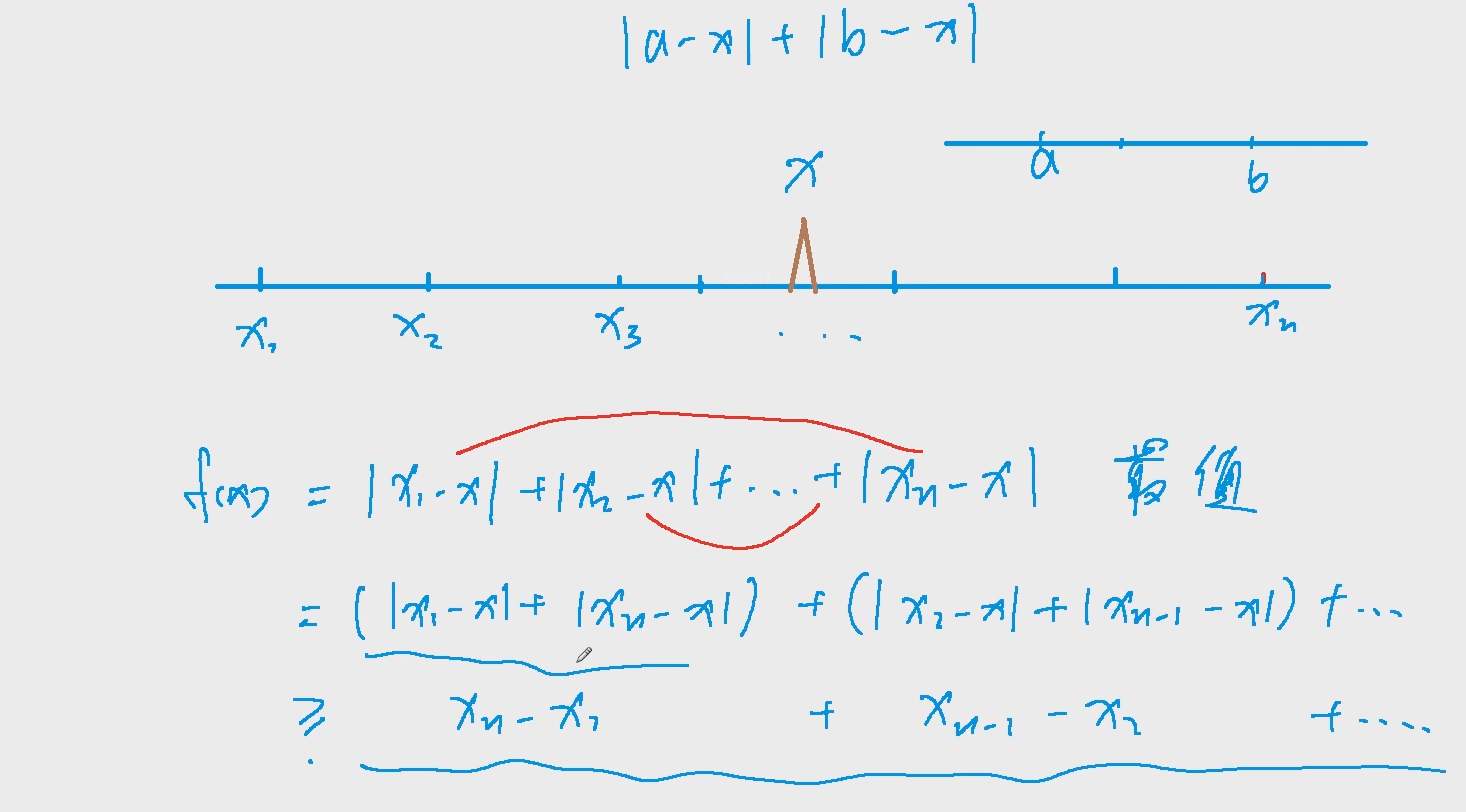 |a-x|+|b-x|
a b
x
x₁ x₂ x₃ ... xₙ
f(x) = |x₁-x|+|x₂-x|+...+|xₙ-x| 值
= (|x₁-x|+|xₙ-x|)+(|x₂-x|+|xₙ₋₁-x|)+...
≥ xₙ-x₁ + xₙ₋₁-x₂ +....